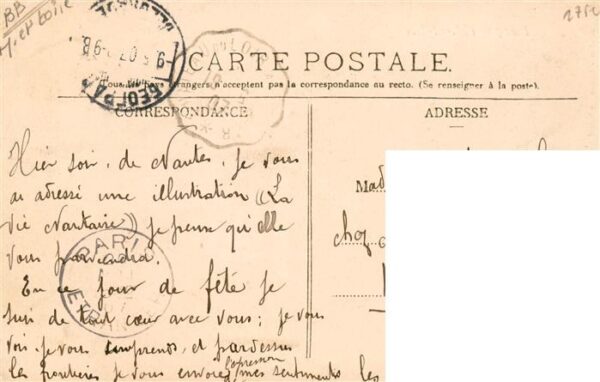 BB
M. et Loire
2750
БѢЛГРАД
9 5 07 3-9 8
CARTE POSTALE.
Tous les pays étrangers n'acceptent pas la correspondance au recto. (Se renseigner à la poste).
CORRESPONDANCE
ADRESSE
Hier soir, de Nantes, je vous
ai adressé une illustration ((La
vie Nantaise)) je pense qu'elle
vous parviendra.
PARIS
ETRANGER
En ce jour de fête je
suis de tout cœur avec vous ; je vous
vois, je vous comprends, et par dessus
les frontières je vous envoie l'expression mes sentiments les
Mad
chez